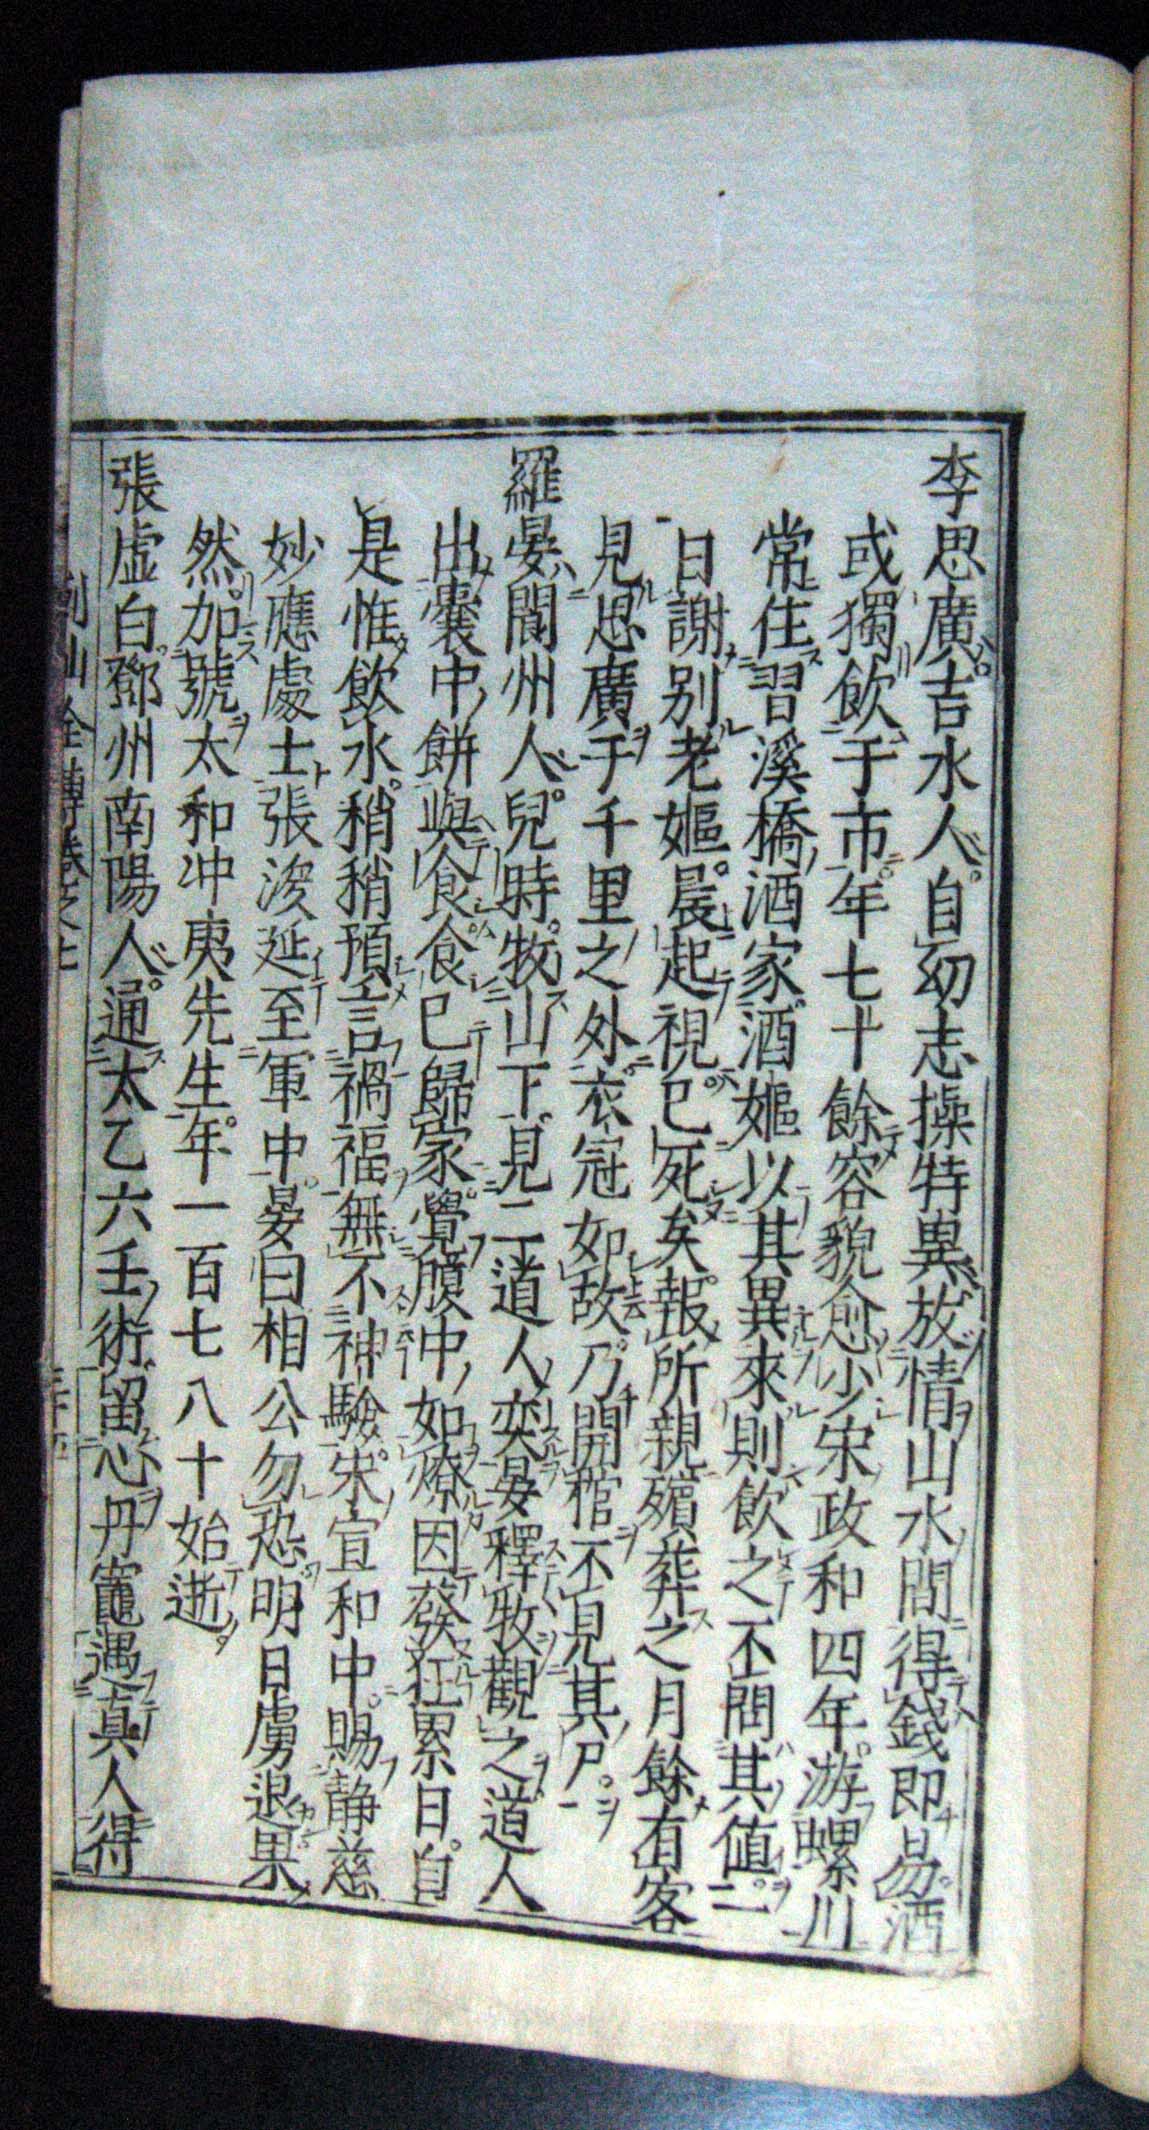 李思廣吉水人自幼志操特異放情山水間得錢即易酒
或獨飲于市年七十餘容貌愈少宋政和四年游螺川
常住習溪橋酒家酒嫗以其異來則飲之不問其値一
日謝別老嫗晨起視已死矣報所親殯葬之月餘有客
見思廣于千里之外衣冠如故乃開棺不見其尸
羅晏閬州人兒時牧山下見二道人奕晏釋牧觀之道人
出囊中餅與食食已歸家覺腹中如燎因發狂累日自
是惟飲水稍稍預言禍福無不神驗宋宣和中賜静慈
妙應處士張浚延至軍中晏曰相公勿恐明日虜退果
然加號太和冲夷先生年一百七八十始逝
張虛白鄧州南陽人通太乙六壬術留心丹竈遇真人得
列仙全傳卷之七